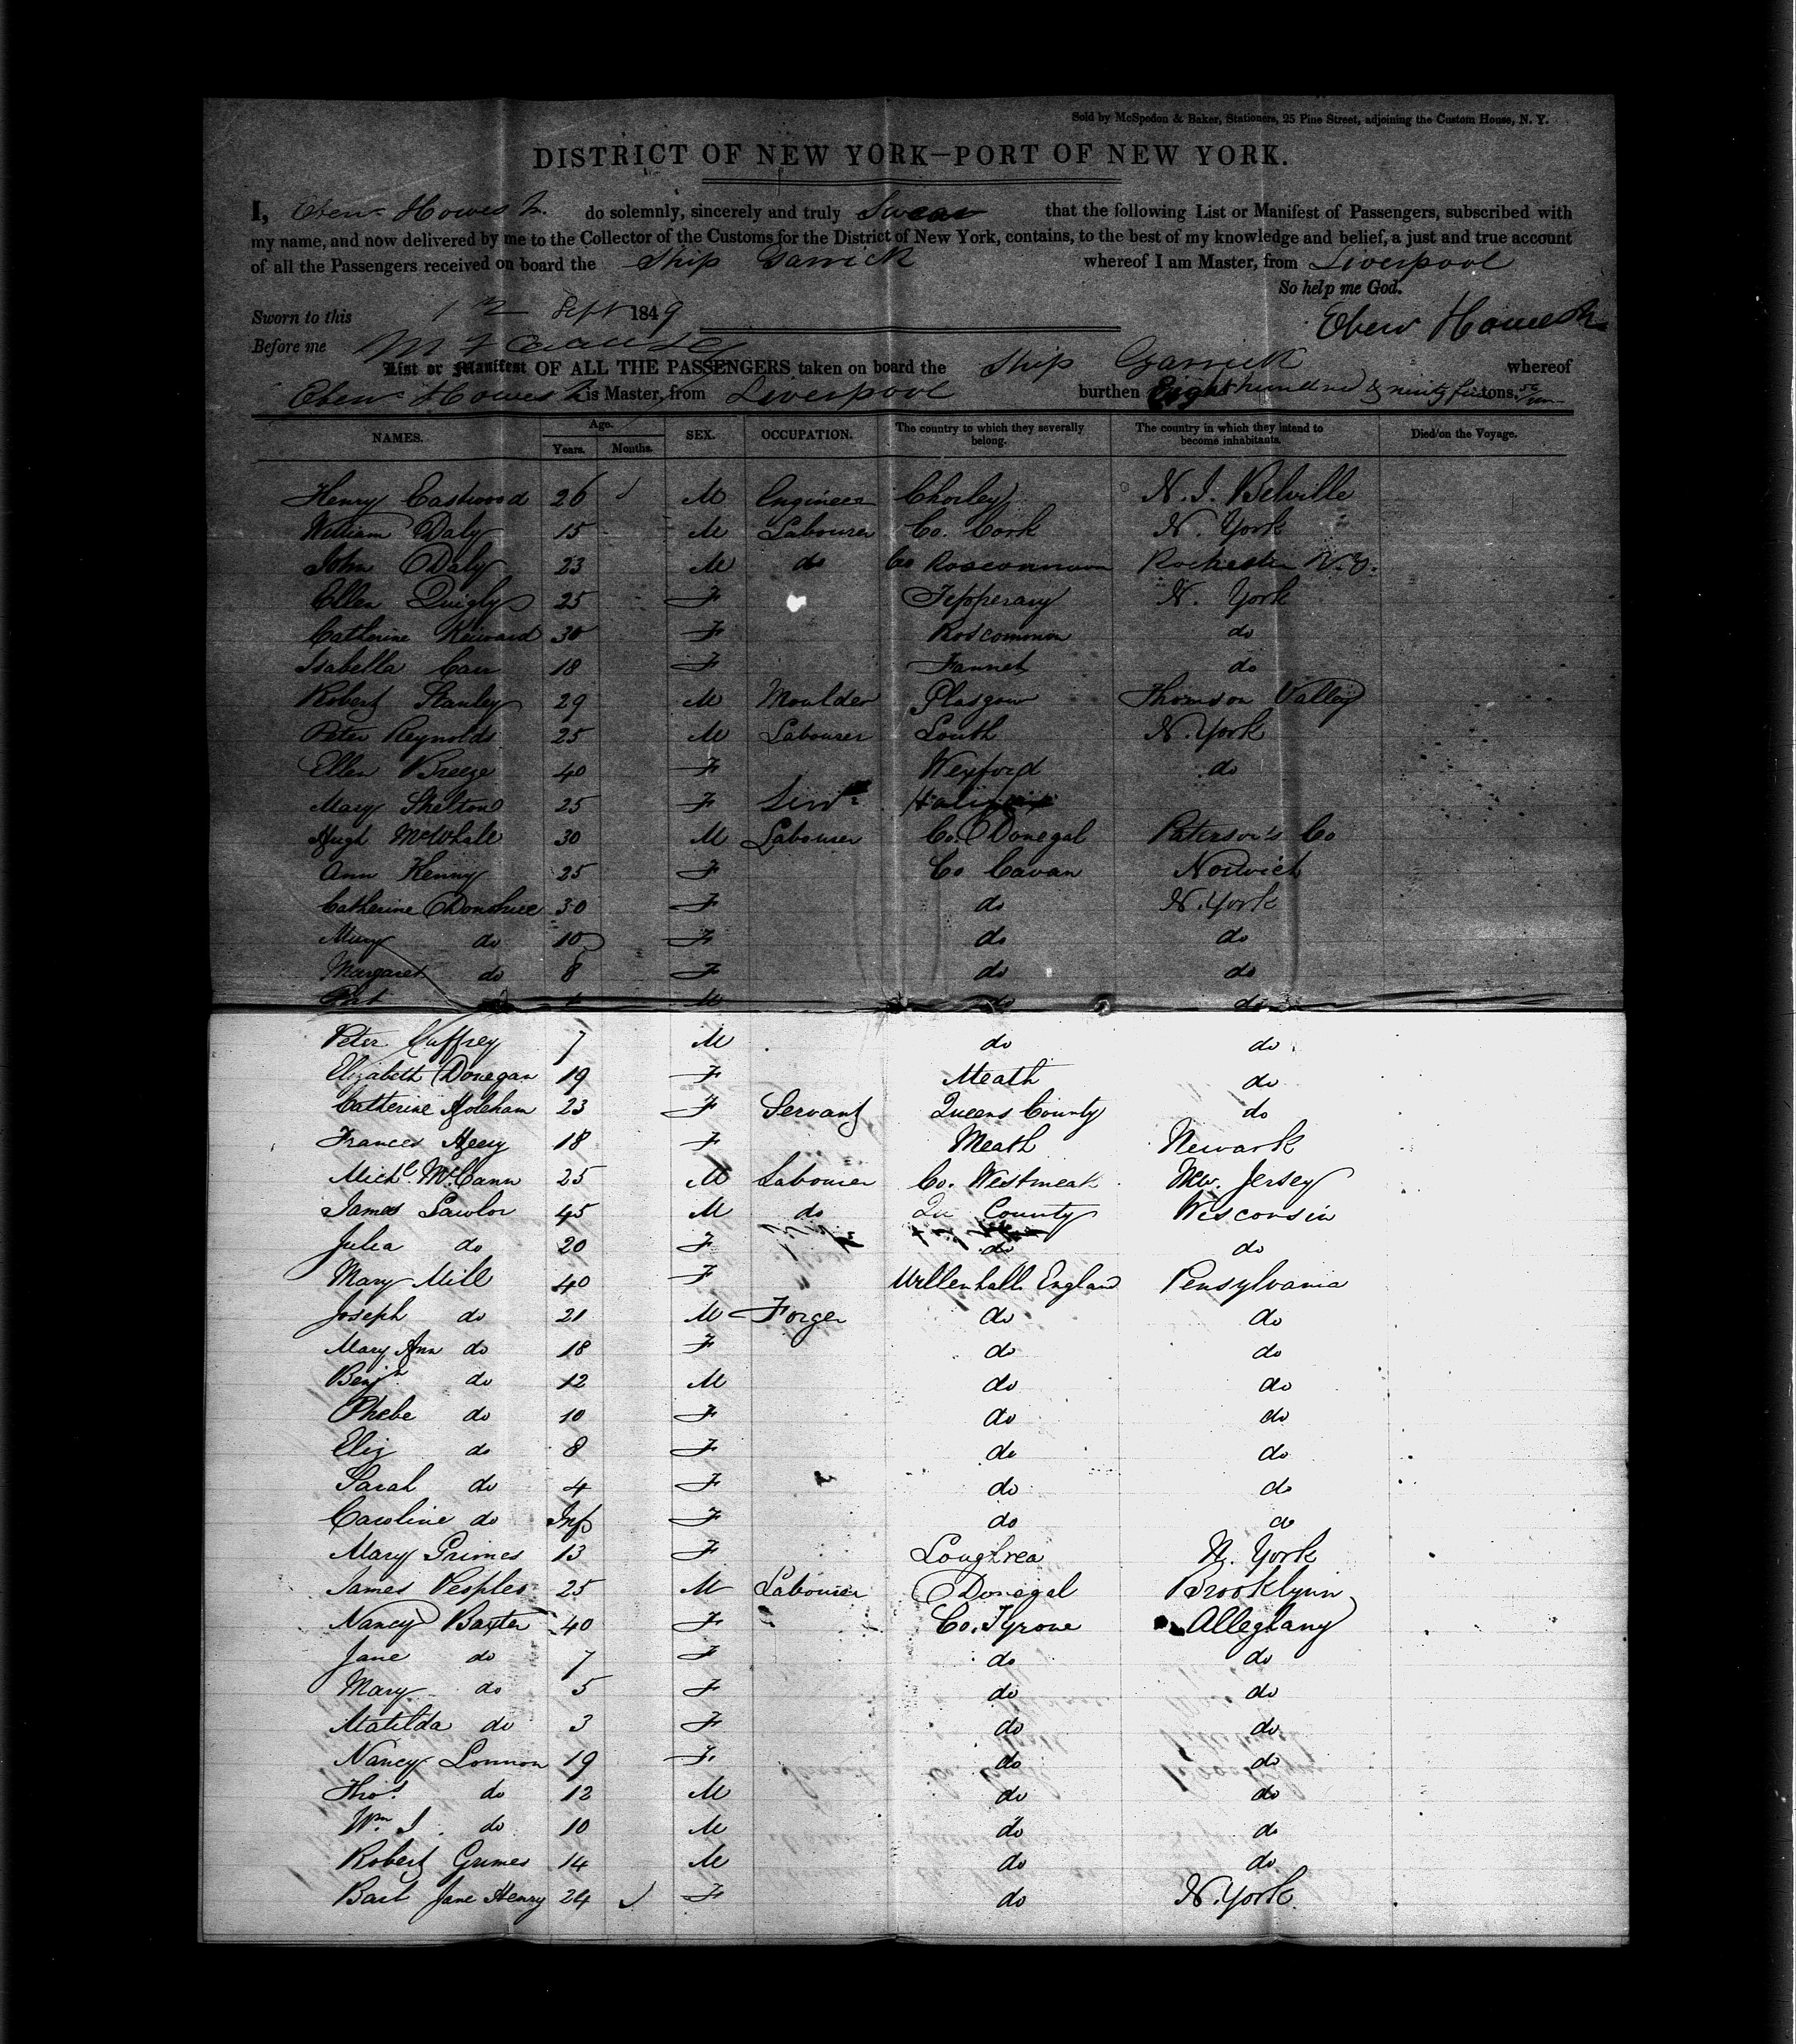 Sold by McSpedon & Baker, Stationers, 25 Pine Street, adjoining the Custom House, N. Y.
DISTRICT OF NEW YORK—PORT OF NEW YORK.
I, Eben Howes Jr. do solemnly, sincerely and truly Swear that the following List or Manifest of Passengers, subscribed with
my name, and now delivered by me to the Collector of the Customs for the District of New York, contains, to the best of my knowledge and belief, a just and true account
of all the Passengers received on board the Ship Garrick whereof I am Master, from Liverpool
So help me God.
Sworn to this 12 Sept 1849
Eben Howes Jr.
Before me
List or Manifest OF ALL THE PASSENGERS taken on board the Ship Garrick whereof
Eben Howes Jr is Master, from Liverpool burthen Eight hundred & ninty tons.
NAMES. Age. Years. Months. SEX. OCCUPATION. The country to which they severally belong. The country in which they intend to become inhabitants. Died on the Voyage.
Henry Eastwood 26 M Engineer Chorley N. J. Belville
William Daly 15 M Labourer Co. Cork N. York
John Daly 23 M do Co Roscommon Rochester N.Y.
Ellen Quigly 25 F Tepperary N. York
Catherine 30 F Roscommon do
Isabella Carr 18 F Fannet do
Robert Stanley 29 M Moulder Glasgow Thomson Valley
Peter Reynolds 25 M Labourer Louth N. York
Ellen Breeze 40 F Wexford do
Mary Skelton 25 F Servt
Hugh McWhale 30 M Labourer Co. Donegal Paterson's Co
Ann Kenny 25 F Co Cavan Norwich
Catherine Donohue 30 F do N. York
Mary do 10 F do do
Margaret do 8 F do do
Pat M do do
Peter Caffrey 7 M do do
Elizabeth Donegan 19 F Meath do
Catherine Holeham 23 F Servant Queens County do
Frances Heey 18 F Meath Newark
Michl. McCann 25 M Labourer Co. Westmeath New. Jersey
James Lawlor 45 M do Qu County Wisconsin
Julia do 20 F do do
Mary Mill 40 F Willenhall England Pensylvania
Joseph do 21 M Forger do do
Mary Ann do 18 F do do
Benjn do 12 M do do
Phebe do 10 F do do
Eliz do 8 F do do
Sarah do 4 F do do
Caroline do Inf F do do
Mary Grimes 13 F Loughrea N. York
James Peoples 25 M Labourer Donegal Brooklynn
Nancy Baxter 40 F Co. Tyrone Alleghany
Jane do 7 F do do
Mary do 5 F do do
Matilda do 3 F do do
Nancy Lonnon 19 F do do
Thos. do 12 M do do
Wm J. do 10 M do do
Robert Grimes 14 M do do
Jane Henry 24 F do N. York.